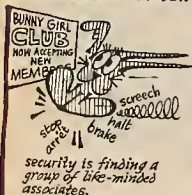 BUNNY GIRL
CLUB
NOW ACCEPTING
NEW
MEMBERS
screech
stop
halt
arrest
brake
security is finding a
group of like-minded
associates.